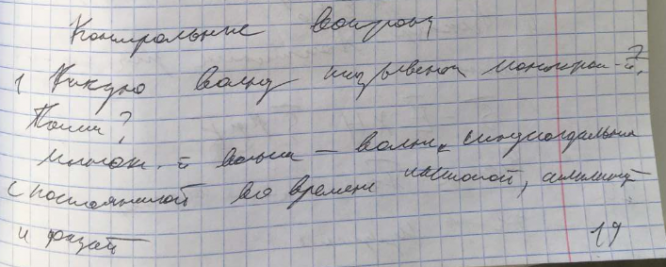 Контрольные вопросы
1 Какую волну называют монохром-й?
волна – волна синусоидальная
с постоянной во времени частотой, амплитуд
и фазой 19